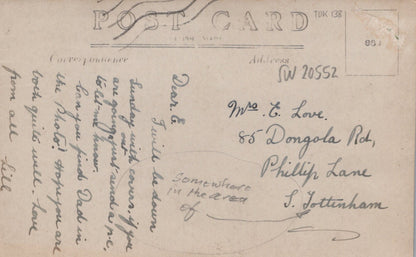 POST CARD
TUK 138
Correspondence
Address
SW 20552
Dear E
I will be down
Sunday with ours. if you
are going out just send a p.c.
to let me know.
Can you find Dad in
the Photo? Hope you are
both quite well. Love
from all
Lill
Mrs E. Love.
85 Dongola Rd,
Phillip Lane
S. Tottenham
Somewhere
in the area
of